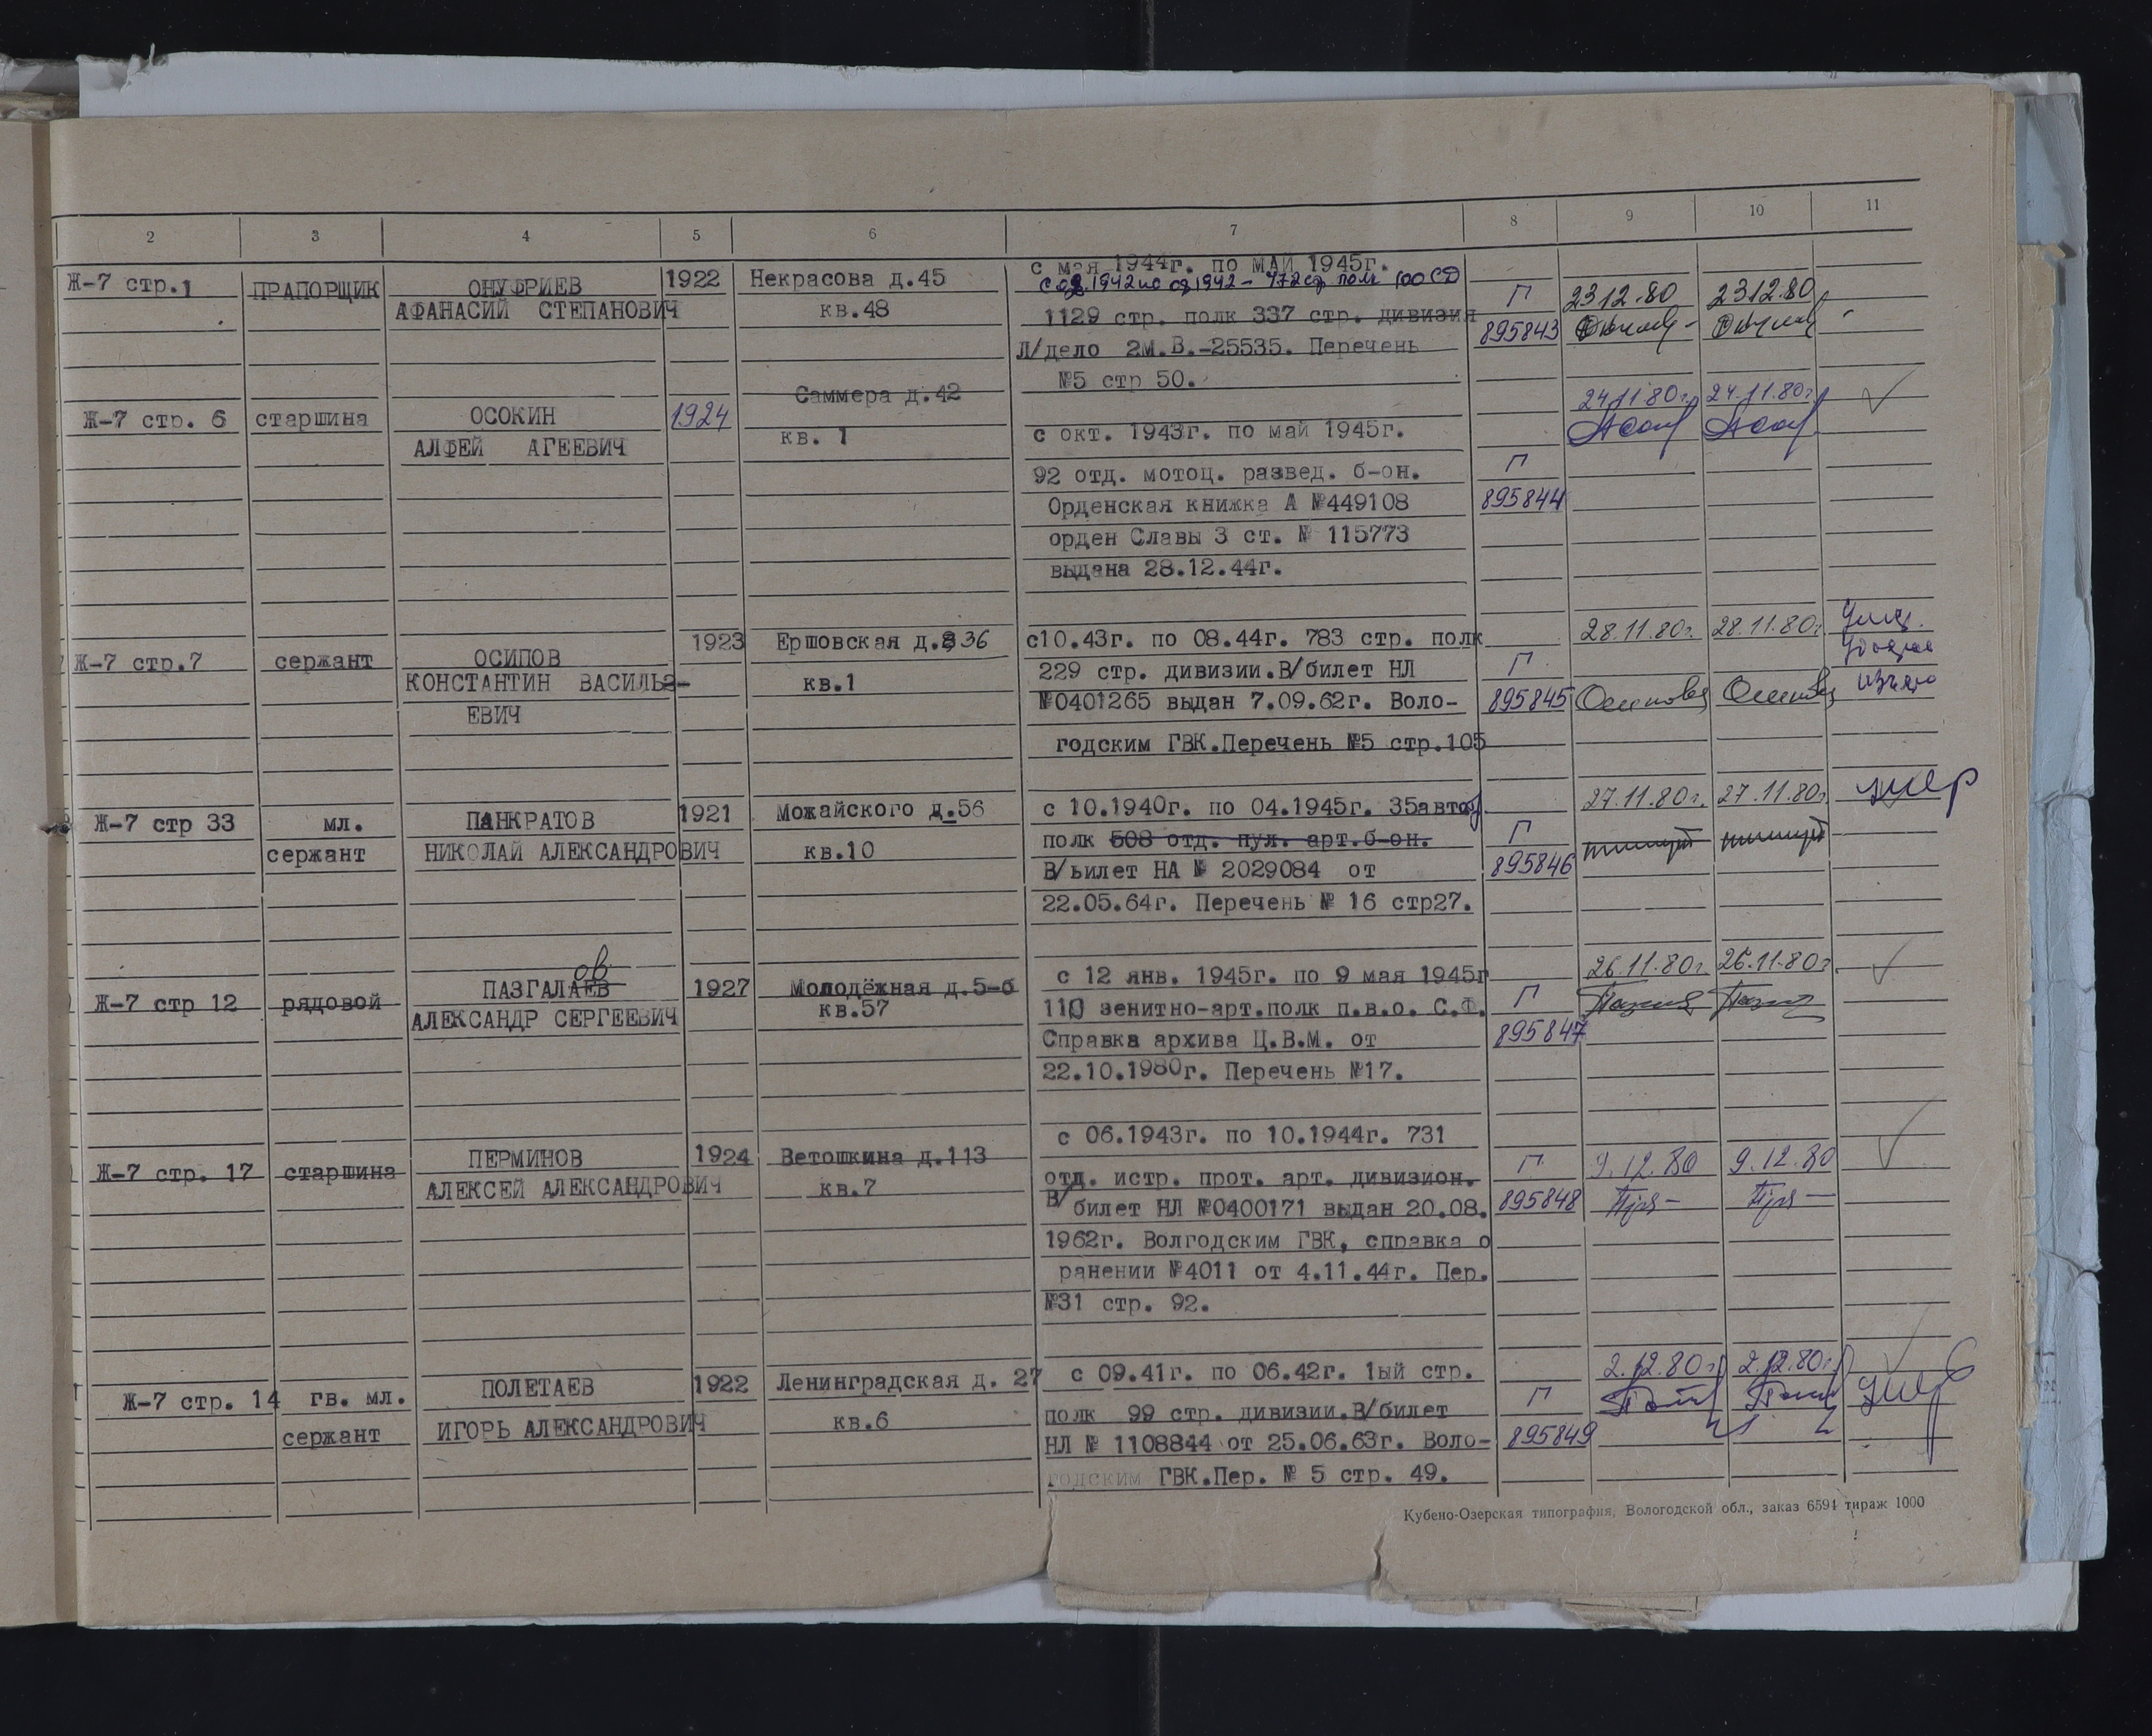 2 3 4 5 6 7 8 9 10 11
с мая 1944г. по МАЙ 1945г.
Ж-7 стр.1 ПРАПОРЩИК ОНУФРИЕВ 1922 Некрасова д.45 1942 по 1942 - 472 сп полк 100 СД Г 23.12.80 23.12.80
АФАНАСИЙ СТЕПАНОВИЧ кв.48 1129 стр. полк 337 стр. дивизия 895843
Л/дело 2м.В.-25535. Перечень
№5 стр 50.
Саммера д.42 24.11.80г. 24.11.80г.
Ж-7 стр. 6 старшина ОСОКИН 1924 кв. 1 с окт. 1943г. по май 1945г.
АЛФЕЙ АГЕЕВИЧ
92 отд. мотоц. развед. б-он. Г
Орденская книжка А №449108 895844
орден Славы 3 ст. № 115773
выдана 28.12.44г.
1923 Ершовская д.36 с10.43г. по 08.44г. 783 стр. полк 28.11.80г. 28.11.80г.
Ж-7 стр.7 сержант ОСИПОВ 229 стр. дивизии.В/билет НЛ Г
КОНСТАНТИН ВАСИЛЬЭ- кв.1 №0401265 выдан 7.09.62г. Воло- 895845 Осипова Осипова
ЕВИЧ
годским ГВК.Перечень №5 стр.105
Ж-7 стр 33 мл. ПАНКРАТОВ 1921 Можайского д.56 с 10.1940г. по 04.1945г. 35автоб 27.11.80г. 27.11.80г. умер
сержант НИКОЛАЙ АЛЕКСАНДРОВИЧ кв.10 полк 508 отд. пул. арт.б-он. Г
В/ьилет НА № 2029084 от 895846
22.05.64г. Перечень № 16 стр27.
ов
Ж-7 стр 12 рядовой ПАЗГАЛАЕВ 1927 Молодёжная д.5-б с 12 янв. 1945г. по 9 мая 1945г 26.11.80г. 26.11.80г.
АЛЕКСАНДР СЕРГЕЕВИЧ кв.57 110 зенитно-арт.полк п.в.о. С.Ф. Г
Справка архива Ц.В.М. от 895847
22.10.1980г. Перечень №17.
с 06.1943г. по 10.1944г. 731
Ж-7 стр. 17 старшина ПЕРМИНОВ 1924 Ветошкина д.113 отд. истр. прот. арт. дивизион. Г 9.12.80 9.12.80
АЛЕКСЕЙ АЛЕКСАНДРОВИЧ кв.7 В/ билет НЛ №0400171 выдан 20.08. 895848
1962г. Волгодским ГВК, справка о
ранении №4011 от 4.11.44г. Пер.
№31 стр. 92.
Ж-7 стр. 14 гв. мл. ПОЛЕТАЕВ 1922 Ленинградская д. 27 с 09.41г. по 06.42г. 1ый стр. 2.12.80г. 2.12.80г.
сержант ИГОРЬ АЛЕКСАНДРОВИЧ кв.6 полк 99 стр. дивизии.В/билет Г
НЛ № 1108844 от 25.06.63г. Воло- 895849
годским ГВК.Пер. № 5 стр. 49.
Кубено-Озерская типография, Вологодской обл., заказ 6594 тираж 1000